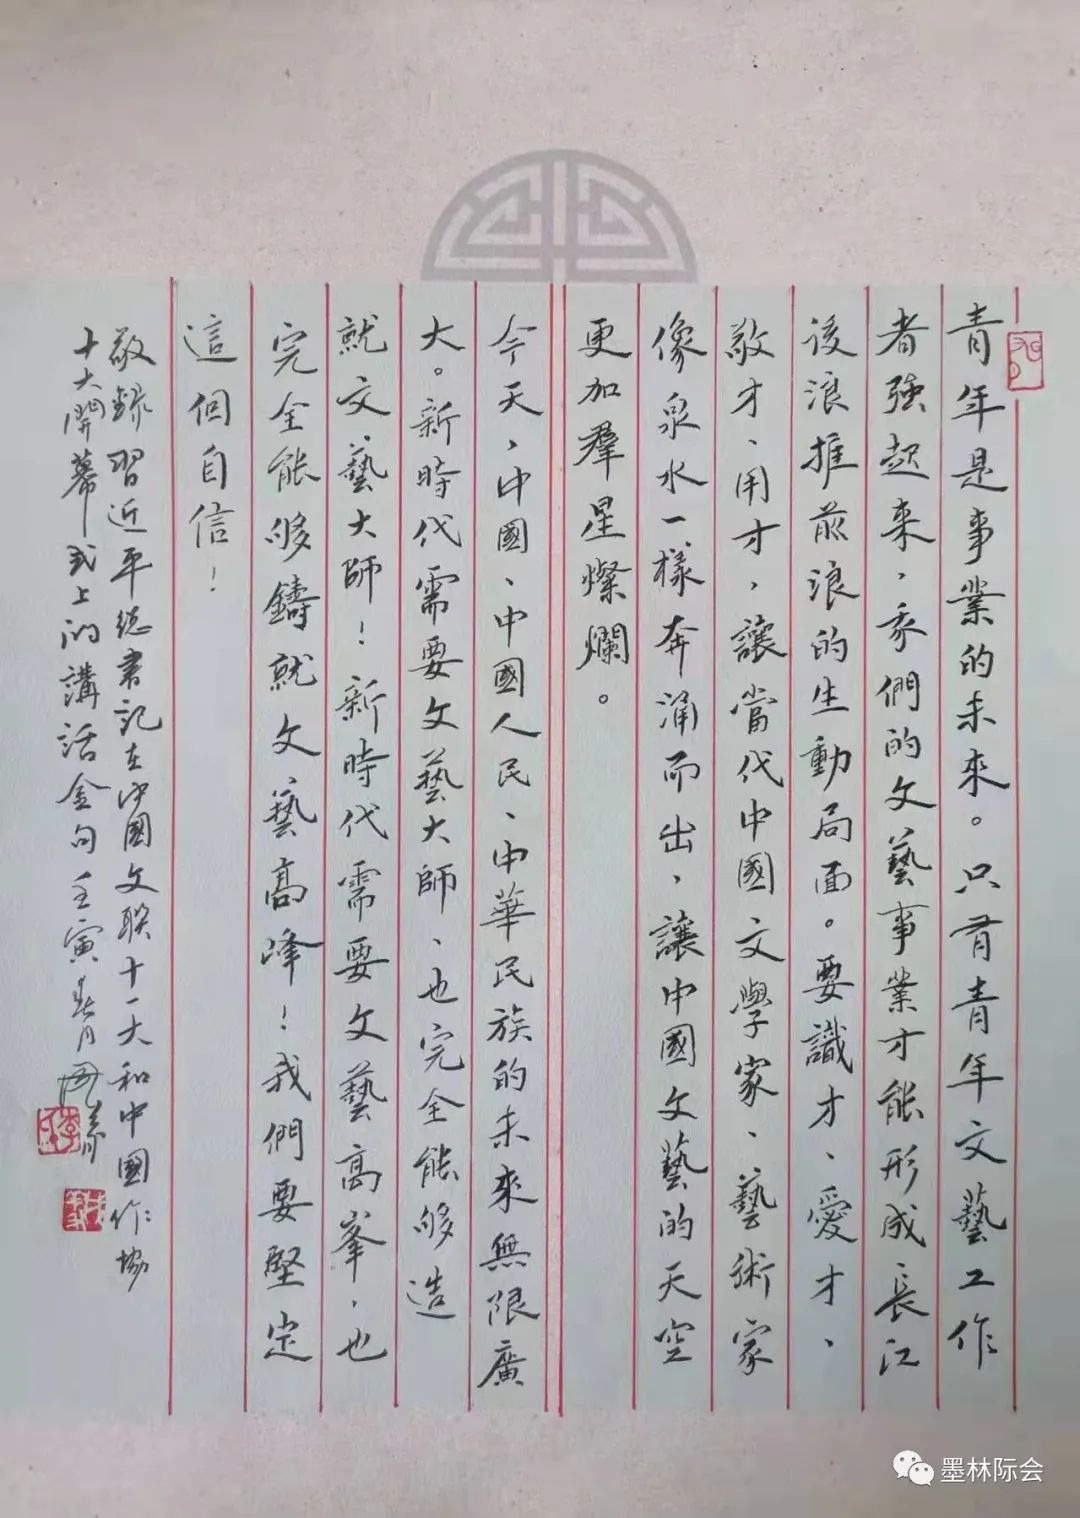 青年是事業的未來。只有青年文藝工作
者強起來，我們的文藝事業才能形成長江
後浪推前浪的生動局面。要識才、愛才、
敬才、用才，讓當代中國文學家、藝術家
像泉水一樣奔涌而出，讓中國文藝的天空
更加羣星燦爛。
今天，中國、中國人民、中華民族的未來無限廣
大。新時代需要文藝大師、也完全能够造
就文藝大師！新時代需要文藝高峯，也
完全能够鑄就文藝高峰！我們要堅定
這個自信！
敬錄習近平總書記在中國文联十一大和中國作協
十大開幕式上的講話金句壬寅春月
墨林际会